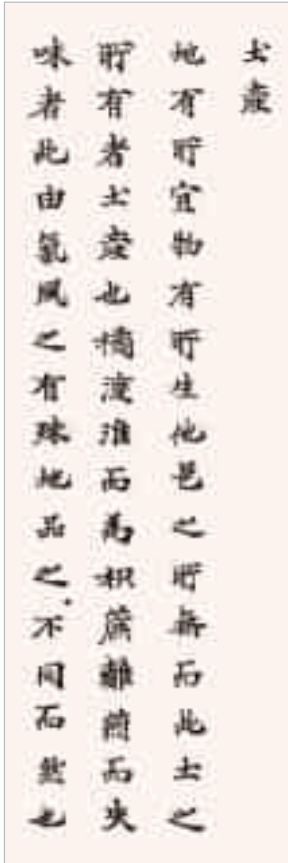 土產
地有所宜物有所生他邑之所無而此土之
所有者土產也橘渡淮而爲枳離而失
味者此由氣風之有殊地品之不同而然也